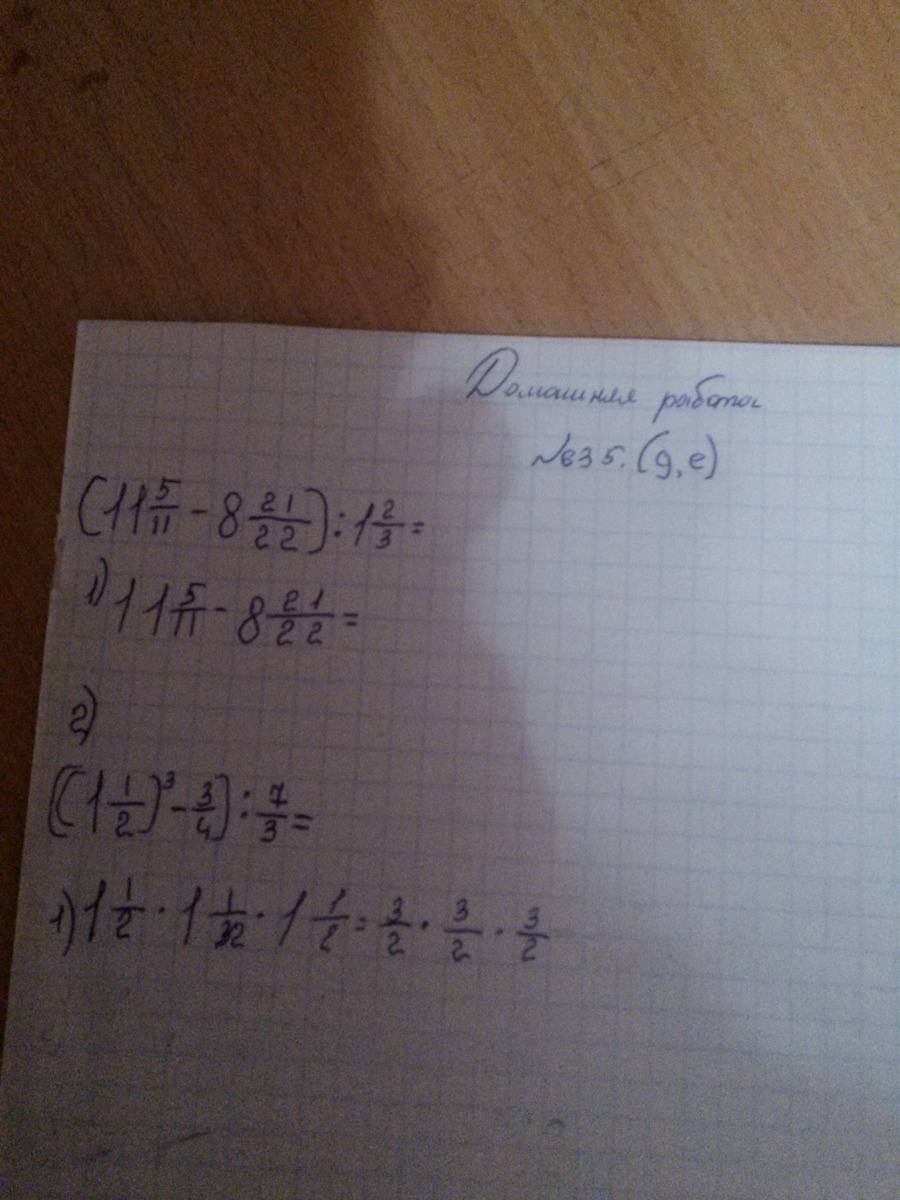 Домашняя работа
№835. (g, e)
(11 5/11 - 8 21/22) : 1 2/3 =
1) 11 5/11 - 8 21/22 =
2)
((1 1/2)³ - 3/4) : 7/3 =
1) 1 1/2 · 1 1/2 · 1 1/2 = 3/2 · 3/2 · 3/2